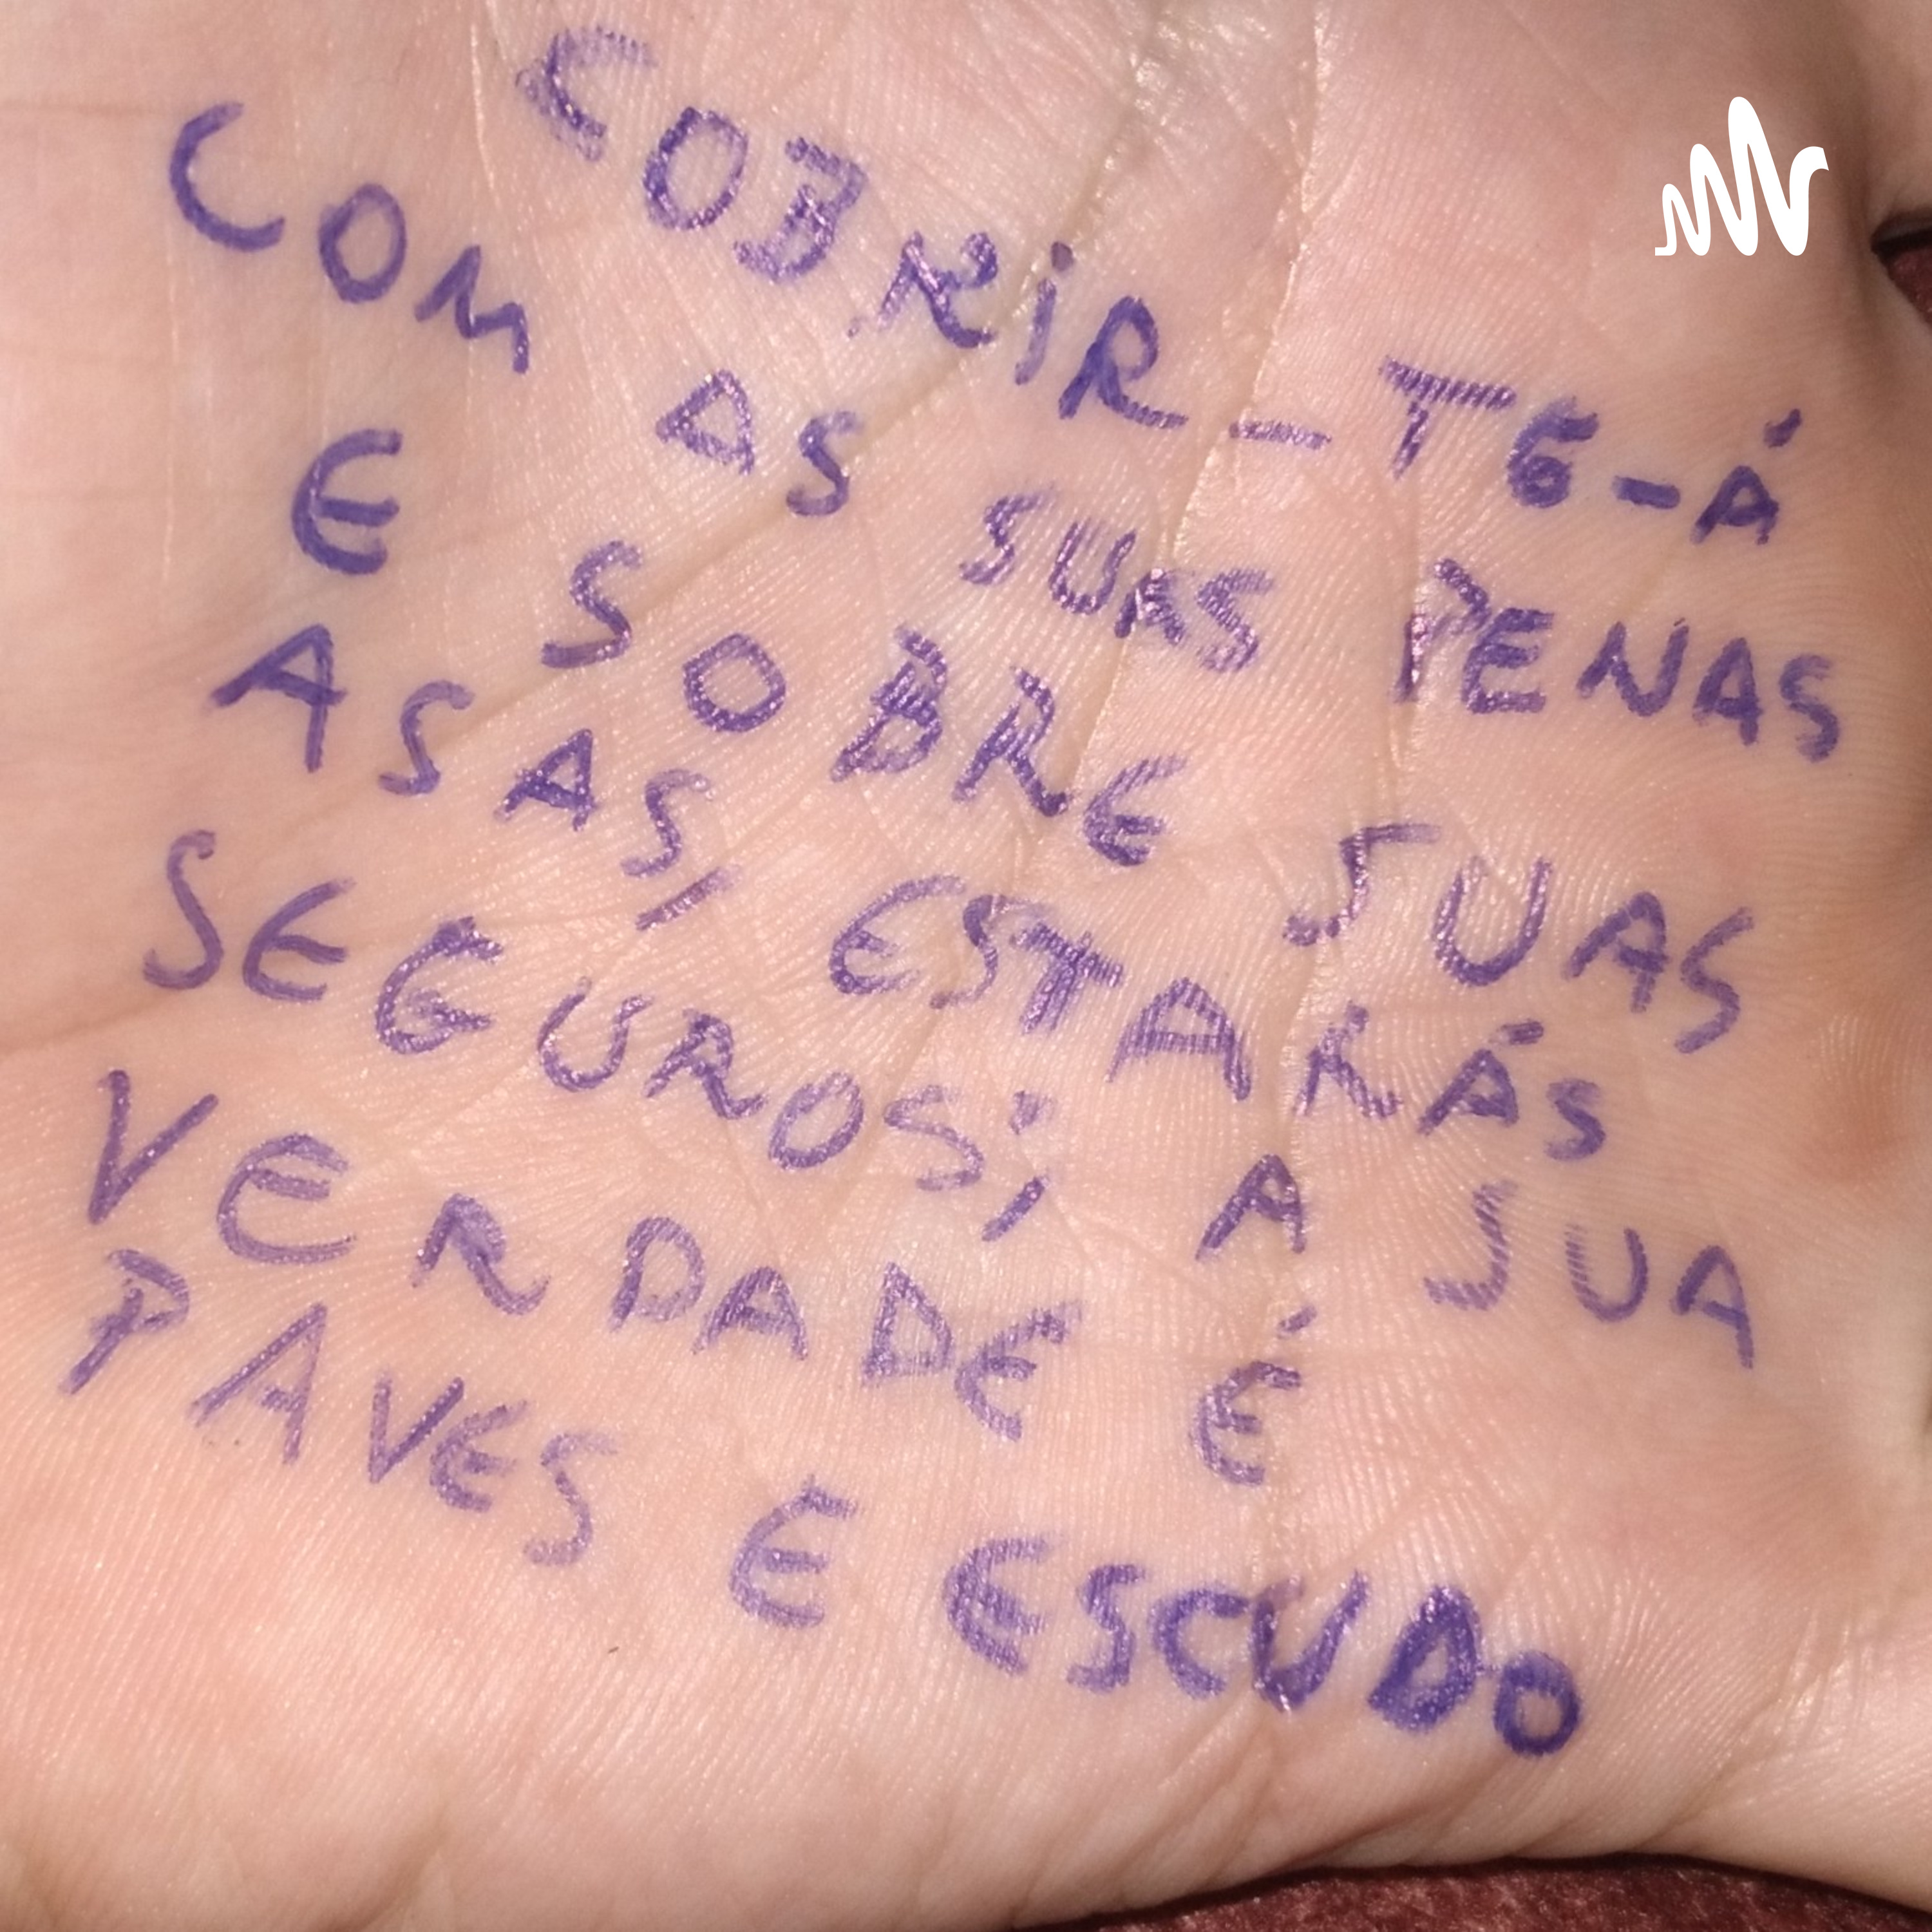 COBRIR-TE-Á
COM AS SUAS PENAS
E SOBRE SUAS
ASAS, ESTARÁS
SEGUROS; A SUA
VERDADE É
PAVES E ESCUDO